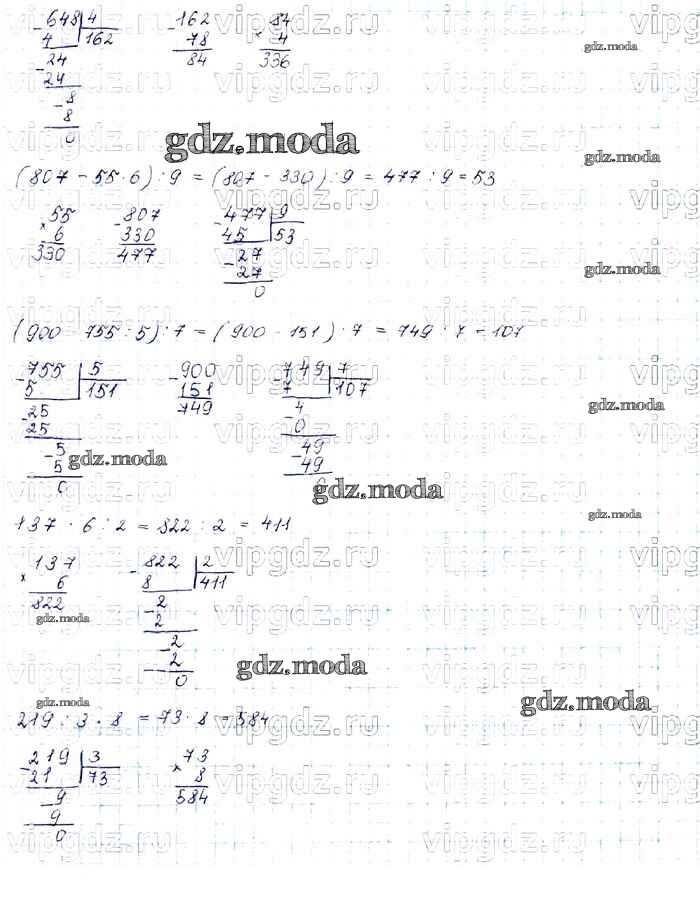 648 | 4    162    84
4     162    78    × 4
24    84    336
24
8
8
0
gdz.moda
gdz.moda
gdz.moda
(807 - 55 · 6) : 9 = (807 - 330) : 9 = 477 : 9 = 53
55    807    477 | 9
× 6    330    45     53
330    477    27
27
0
gdz.moda
(900 - 755 : 5) : 7 = (900 - 151) : 7 = 749 : 7 = 107
755 | 5    900    749 | 7
5     151    151    7     107
25    749    4
25    0
5    49
5    49
0    0
gdz.moda
gdz.moda
gdz.moda
137 · 6 : 2 = 822 : 2 = 411
gdz.moda
137    822 | 2
× 6    8     411
822    2
2
2
2
0
gdz.moda
gdz.moda
gdz.moda
gdz.moda
219 : 3 · 8 = 73 · 8 = 584
219 | 3    73
21     73    × 8
9    584
9
0
gdz.moda
vipgdz.ru